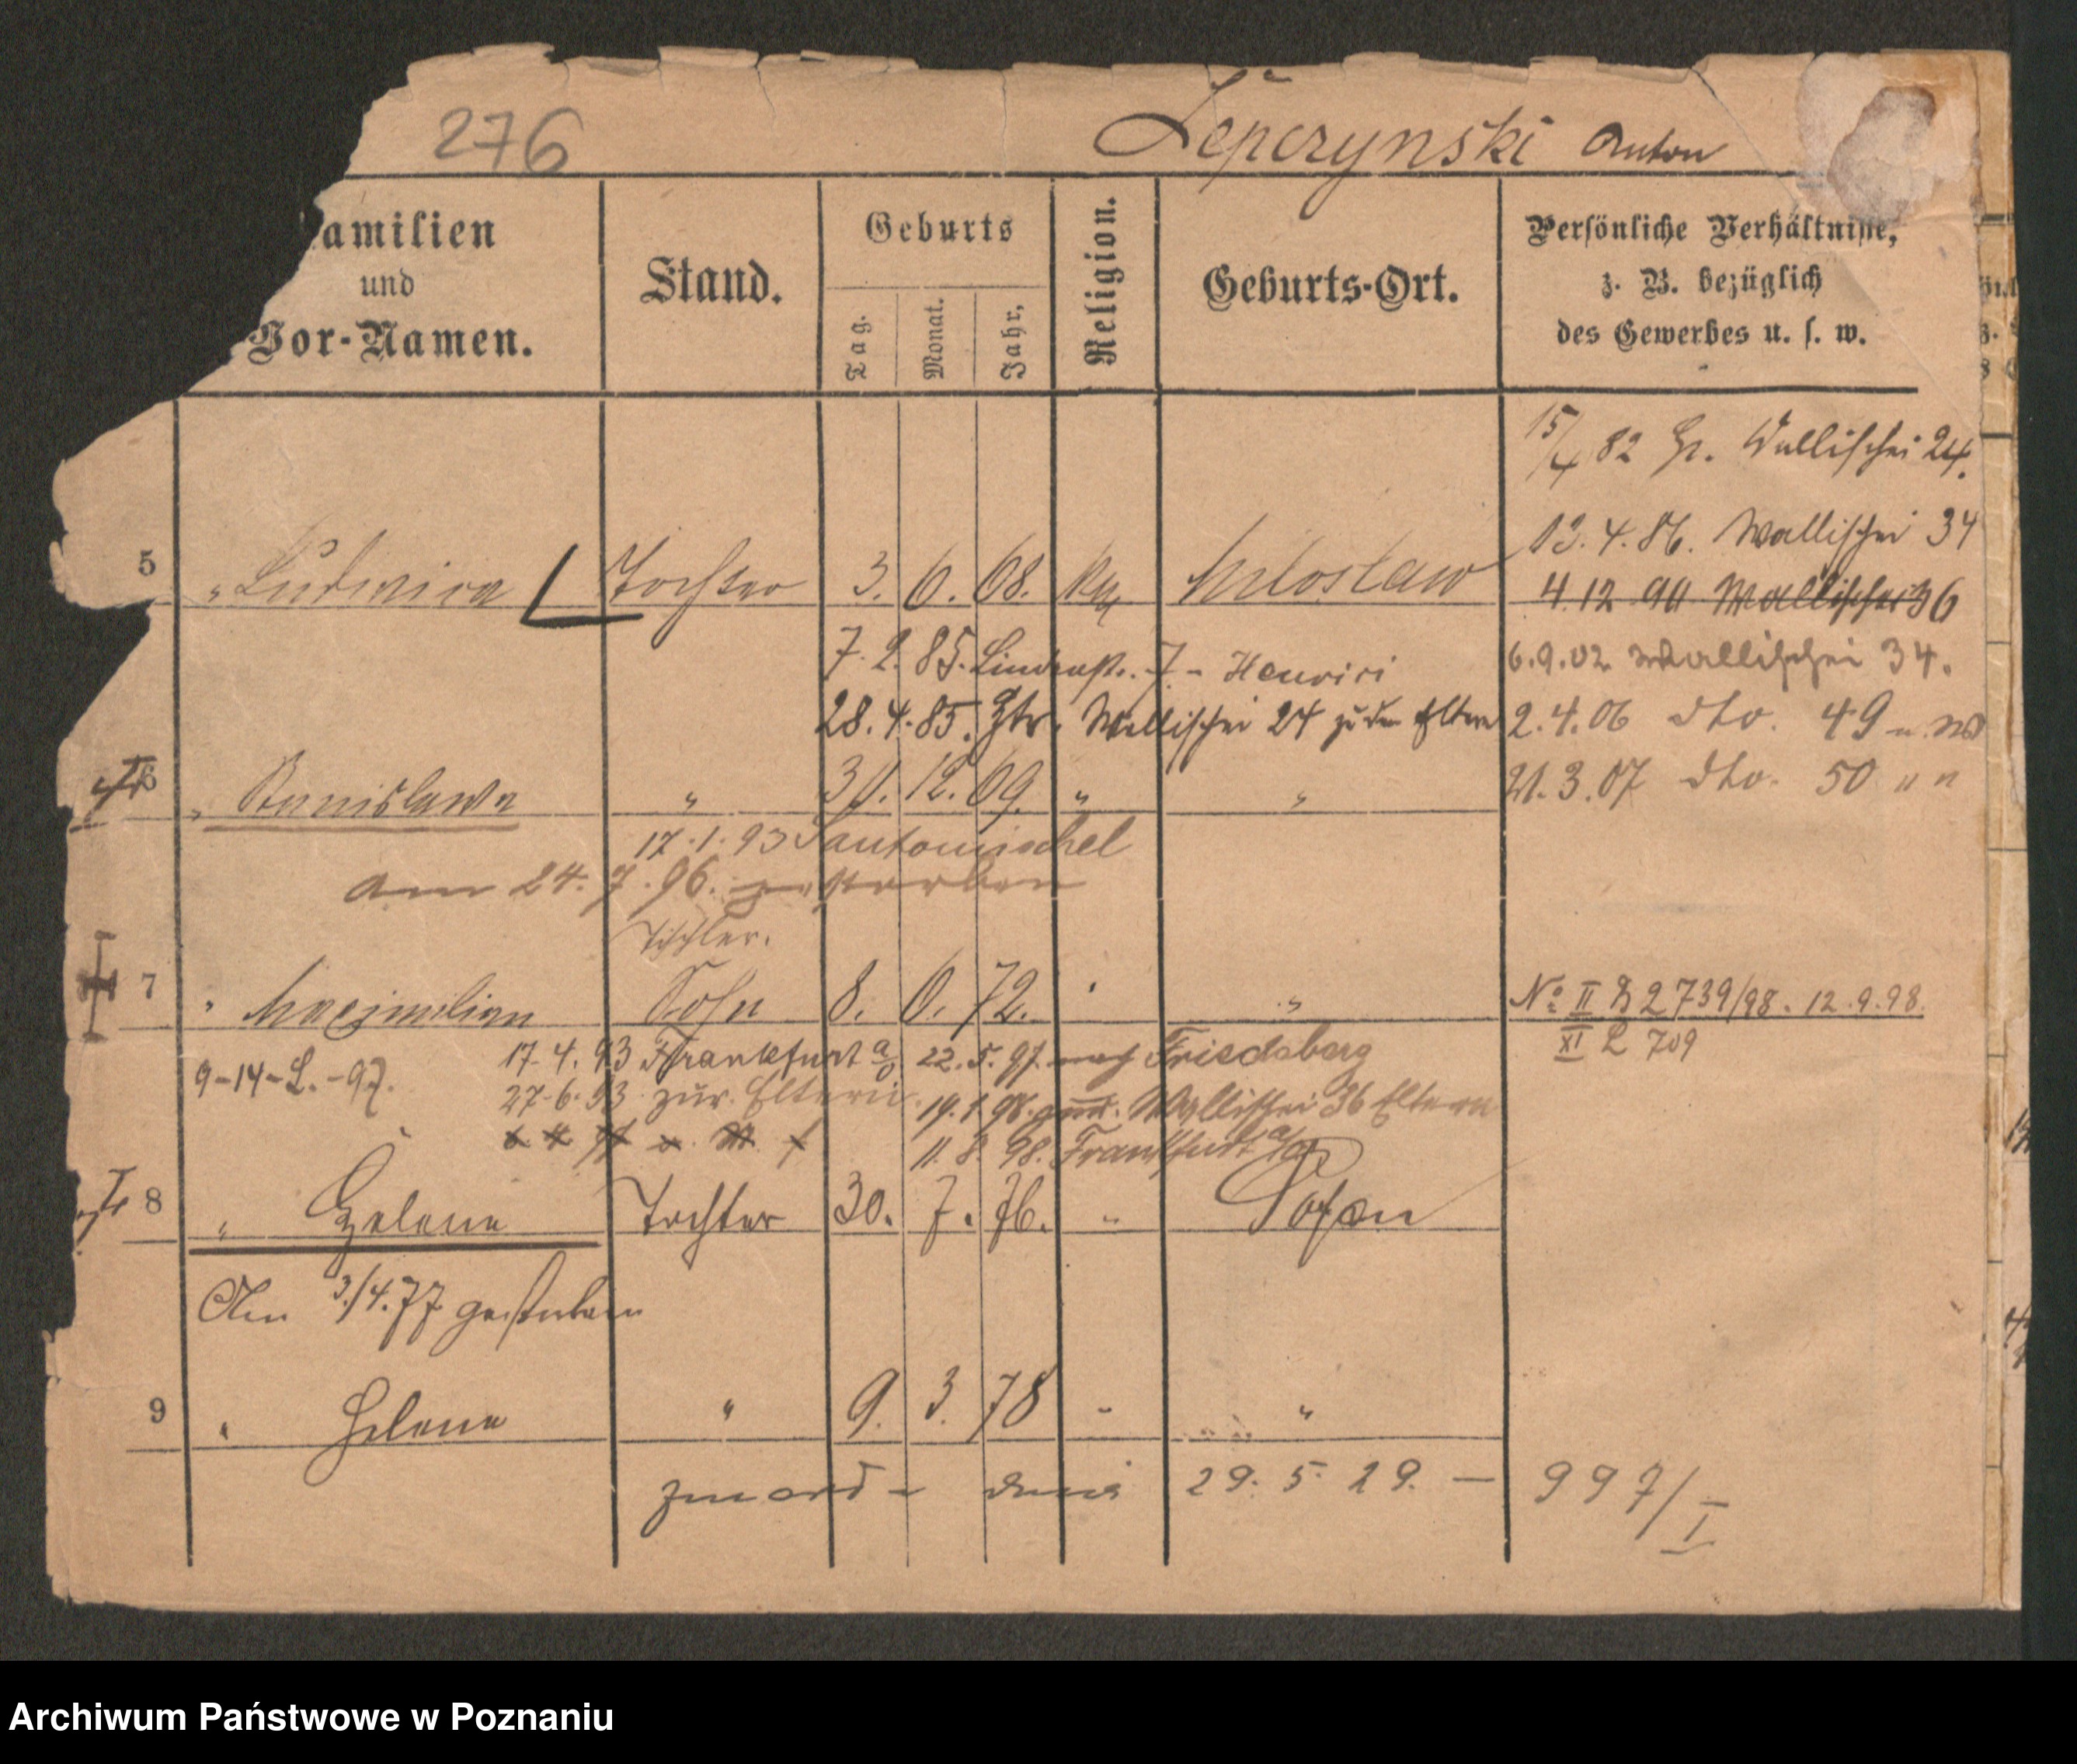 276
Lepczynski Anton
Familien und Vor-Namen. Stand. Geburts Tag. Monat. Jahr. Religion. Geburts-Ort. Persönliche Verhältnisse, z. B. bezüglich des Gewerbes u. s. w.
15/4 82 Wallischei 24.
13.4.86. Wallischei 34
5 " Ludwica Tochter 3. 6. 68. Miloslaw
4.12 90 Wallischei 36
7.2.85. Lindenstr. 7 - Henrici
6.9.02 Wallischei 34.
28.4.85. Wallischei 24 zu den Eltern
2.4.06 dto. 49
6 " Stanislawa " 30. 12. 69. " "
21.3.07 dto. 50 " "
17.1.93 Santomischel
am 24.7.96. gestorben
Tischler.
7 " Maximilian Sohn 8. 6. 72. " "
No II B 2739/98. 12.9.98.
XI L 709
17.4.93 Frankfurt a/O 22.5.97. nach Friedeberg
9-14-L.-97.
27.6.93 zur. Eltern
19.1.98. Wallischei 36 Eltern
11.8.98. Frankfurt a/O
8 " Helene Tochter 30. 7. 76. " Posen
Am 3/4.77 gestorben
9 " Helene " 9. 3. 78 " "
29.5.29. — 997/I
Archiwum Państwowe w Poznaniu